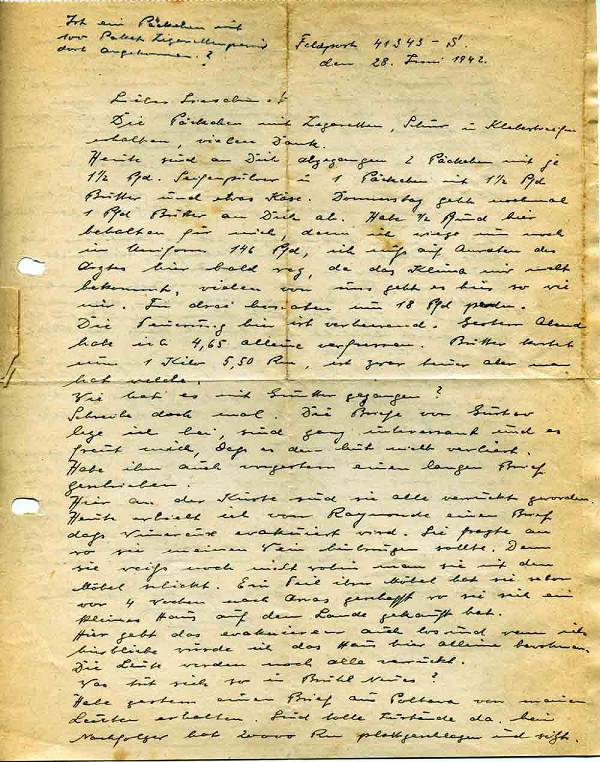 Ist ein Päckchen mit
100 Paket Zigarettenpapier
dort angekommen?
Feldpost 41343-S'
den 28. Juni 1942.
Liebes Lieschen!
Die Päckchen mit Zigaretten, Schnur u Klebstreifen
erhalten, vielen Dank.
Heute sind an Dich abgegangen 2 Päckchen mit je
1½ Pfd. Seifenpulver u 1 Päckchen mit 1½ Pfd
Butter und etwas Käse. Donnerstag geht nochmal
1 Pfd Butter an Dich ab. Habe ½ Pfund hier
behalten für mich, denn ich wiege nur noch
in Uniform 146 Pfd, ich muß auf Anraten des
Arztes hier bald weg, da das Klima mir nicht
bekommt, vielen von uns geht es hier so wie
mir. In drei Monaten um 18 Pfd
Die Teuerung hier ist verheerend. Gestern Abend
habe ich 4,65 alleine verfressen. Butter kostet
nun 1 Kilo 5,50 Rm, ist zwar teuer aber man
hat welche.
Wie hat es mit Günther gegangen?
Schreibe doch mal. Die Briefe von Gustav
lege ich bei, sind ganz interessant und es
freut mich, daß er den Mut nicht verliert.
Habe ihm auch vorgestern einen langen Brief
geschrieben.
Hier an der Küste sind sie alle verrückt geworden.
Heute erhielt ich von Raymonde einen Brief
daß Wimereux evakuiert wird. Sie fragte an
wo sie meinen Wein hinbringen sollte. Denn
sie weiß noch nicht wohin man sie mit den
Möbel schickt. Ein Teil ihrer Möbel hat sie schon
vor 4 Wochen nach Arras geschafft wo sie sich ein
kleines Haus auf dem Lande gekauft hat.
Hier geht das evakuieren auch los und wenn ich
hierbliebe würde ich das Haus hier alleine bewohnen.
Die Leute werden noch alle verrückt.
Was tut sich so in Brühl Neues?
Habe gestern einen Brief aus Poltava von meinen
Leuten erhalten. Sind tolle Zustände da. Mein
Nachfolger hat 20000 Rm und sitzt.